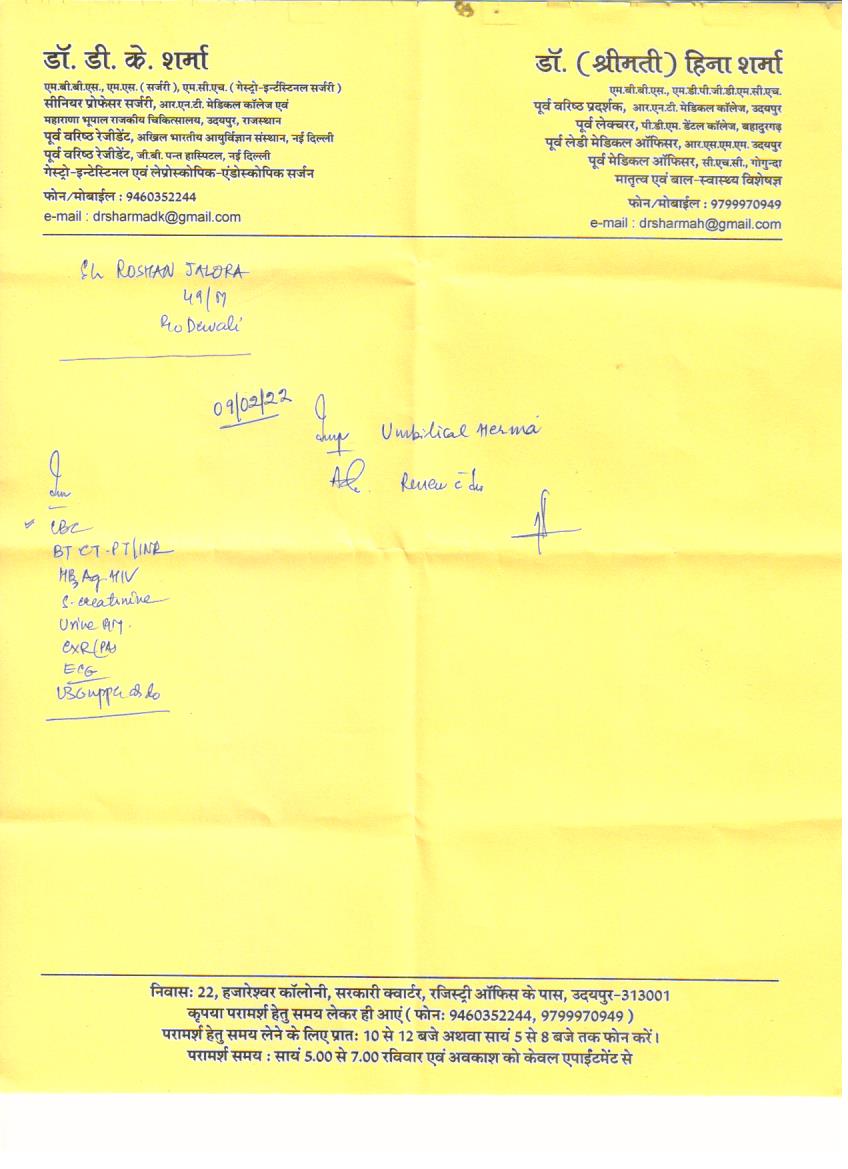 डॉ. डी. के. शर्मा
एम.बी.बी.एस., एम.एस. ( सर्जरी ), एम.सी.एच. ( गेस्ट्रो-इन्टेंस्टिनल सर्जरी )
सीनियर प्रोफेसर सर्जरी, आर.एन.टी. मेडिकल कॉलेज एवं
महाराणा भूपाल राजकीय चिकित्सालय, उदयपुर, राजस्थान
पूर्व वरिष्ठ रेजीडेंट, अखिल भारतीय आयुर्विज्ञान संस्थान, नई दिल्ली
पूर्व वरिष्ठ रेजीडेंट, जी.बी. पन्त हास्पिटल, नई दिल्ली
गेस्ट्रो-इन्टेस्टिनल एवं लेप्रोस्कोपिक-एंडोस्कोपिक सर्जन
फोन/मोबाईल : 9460352244
e-mail : drsharmadk@gmail.com
डॉ. (श्रीमती) हिना शर्मा
एम.बी.बी.एस., एम.डी.पी.जी.डी.एम.सी.एच.
पूर्व वरिष्ठ प्रदर्शक, आर.एन.टी. मेडिकल कॉलेज, उदयपुर
पूर्व लेक्चरर, पी.डी.एम. डेंटल कॉलेज, बहादुरगढ़
पूर्व लेडी मेडिकल ऑफिसर, आर.एस.एम.एम. उदयपुर
पूर्व मेडिकल ऑफिसर, सी.एच.सी., गोगुन्दा
मातृत्व एवं बाल-स्वास्थ्य विशेषज्ञ
फोन/मोबाईल : 9799970949
e-mail : drsharmah@gmail.com
Sh ROSHAN JALORA
49/M
R/o Dewali
09/02/22
Imp Umbilical Hernia
Adv. Review c̄
Inv
CBC
BT CT-PT/INR
HBsAg. HIV
S. creatinine
Urine RM.
CXR (PA)
ECG
USG upper abdo
निवासः 22, हजारेश्वर कॉलोनी, सरकारी क्वार्टर, रजिस्ट्री ऑफिस के पास, उदयपुर-313001
कृपया परामर्श हेतु समय लेकर ही आएं ( फोनः 9460352244, 9799970949 )
परामर्श हेतु समय लेने के लिए प्रातः 10 से 12 बजे अथवा सायं 5 से 8 बजे तक फोन करें।
परामर्श समय : सायं 5.00 से 7.00 रविवार एवं अवकाश को केवल एपाईंटमेंट से